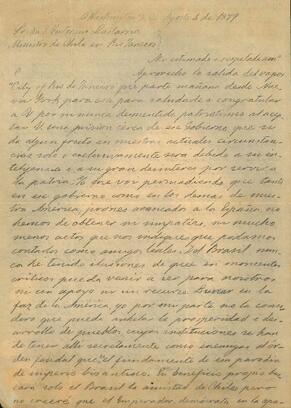 Washington Agosto 3 de 1879
Sr. Dn. J. Victorino Lastarria
Ministro de Chile en Rio Janeiro
Mi estimado i respetado amº
Aprovecho la salida del vapor
"City of Rio de Janeiro" que parte mañana desde Nueva
York para esa para saludarlo i congratular
a V. por su nunca desmentido patriotismo al acep
tar V. una mision cerca de ese Gobierno que si
da algun fruto en nuestras actuales circunstan
cias solo i esclusivamente será debido a su in
teligencia i a su gran desinteres por servir a
la patria. Yo me voi persuadiendo que tanto
en ese gobierno como en los demas de nues
tra América, no
hemos de obtener ni simpatias, ni mucho
menos actos que nos indique que podamos
contarlos como amigos leales. Del Brasil nun
ca he tenido ilusiones de que en momentos
críticos pueda venir a ser para nosotros
ni un apoyo ni un recurso. Lunar en la
faz de la América, yo por mi parte no la consi
dero que pueda anhelar la prosperidad i de
sarrollo de pueblos cuyas instituciones se han
de tener allí secretamente como enemigas d'or
den feudal que es el fundamento de esa parodia
de imperio bisantino. En beneficio propio bus
cará solo el Brasil la amistad de Chile pero
no creeré que el Emperador, demócrata en la apa